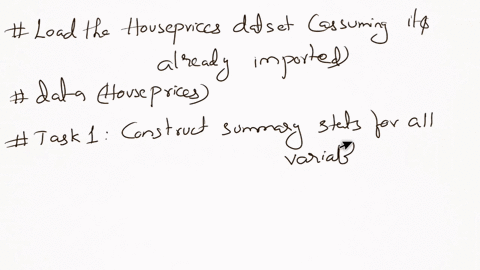 # Load the Houseprices datset (assuming its
already imported)
# data (Houseprices)
# Task 1: Construct summary stats for all
variab